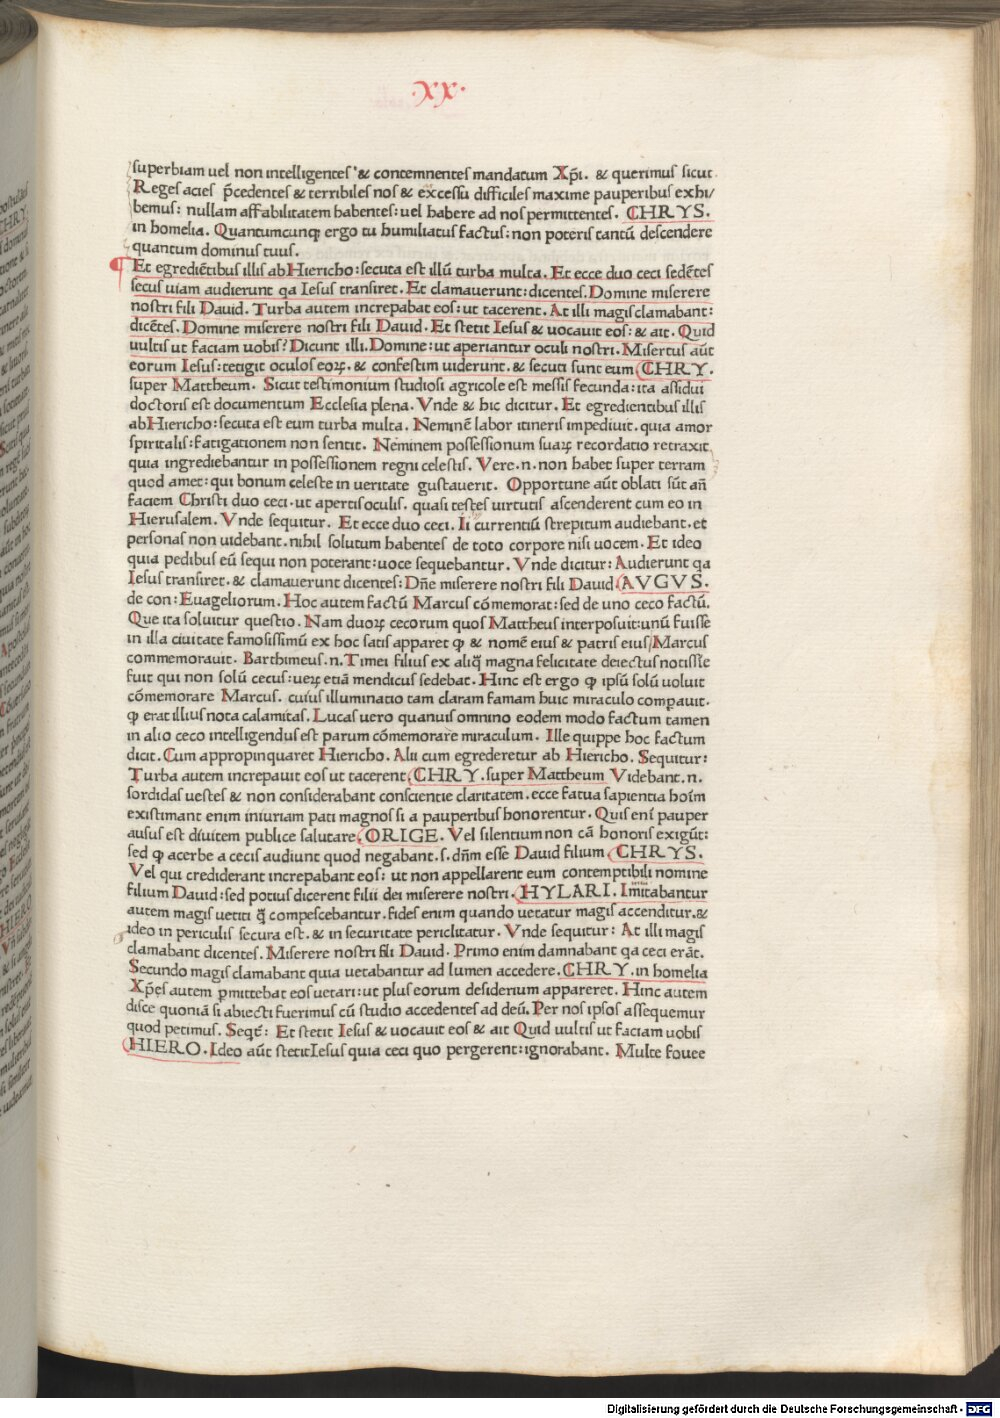 ·XX·
superbiam uel non intelligentes & contemnentes mandatum Xp̄i. & querimus sicut
Reges acies p̄cedentes & terribiles nos & excessu difficiles maxime pauperibus exhi/
bemus: nullam affabilitatem habentes: uel habere ad nos permittentes. CHRYS.
in homelia. Quantumcunqȝ ergo tu humiliatus factus: non poteris tantū descendere
quantum dominus tuus.
¶ Et egrediētibus illis ab Hiericho: secuta est illū turba multa. Et ecce duo ceci sedētes
secus uiam audierunt qa Iesus transiret. Et clamauerunt: dicentes. Domine miserere
nostri fili Dauid. Turba autem increpabat eos: ut tacerent. At illi magis clamabant:
dicētes. Domine miserere nostri fili Dauid. Et stetit Iesus & uocauit eos: & ait. Quid
uultis ut faciam uobis? Dicunt illi. Domine: ut aperiantur oculi nostri. Misertus aūt
eorum Iesus: tetigit oculos eoꝝ. & confestim uiderunt. & secuti sunt eum CHRY.
super Mattheum. Sicut testimonium studiosi agricole est messis fecunda: ita assidui
doctoris est documentum Ecclesia plena. Vnde & hic dicitur. Et egredientibus illis
ab Hiericho: secuta est eum turba multa. Neminē labor itineris impediuit. quia amor
spiritalis: fatigationem non sentit. Neminem possessionum suaꝝ recordatio retraxit
quia ingrediebantur in possessionem regni celestis. Vere .n. non habet super terram
quod amet: qui bonum celeste in ueritate gustauerit. Opportune aūt oblati sūt añ
faciem Christi duo ceci. ut apertis oculis. quasi testes uirtutis ascenderent cum eo in
Hierusalem. Vnde sequitur. Et ecce duo ceci. Ii currentiū strepitum audiebant. et
personas non uidebant. nihil solutum habentes de toto corpore nisi uocem. Et ideo
quia pedibus eū sequi non poterant: uoce sequebantur. Vnde dicitur: Audierunt qa
Iesus transiret. & clamauerunt dicentes: Dñe miserere nostri fili Dauid AVGVS.
de con: Euageliorum. Hoc autem factū Marcus cōmemorat: sed de uno ceco factū.
Que ita soluitur questio. Nam duoꝝ cecorum quos Mattheus interposuit: unū fuisse
in illa ciuitate famosissimū ex hoc satis apparet ꝙ & nomē eius & patris eius/ Marcus
commemorauit. Barthimeus .n. Timei filius ex aliq̄ magna felicitate deiectus notissīe
fuit qui non solū cecus: ueꝝ etiā mendicus sedebat. Hinc est ergo ꝙ ipsū solū uoluit
cōmemorare Marcus. cuius illuminatio tam claram famam huic miraculo compauit.
ꝙ erat illius nota calamitas. Lucas uero quanuis omnino eodem modo factum tamen
in alio ceco intelligendus est parum cōmemorare miraculum. Ille quippe hoc factum
dicit. Cum appropinquaret Hiericho. Alii cum egrederetur ab Hiericho. Sequitur:
Turba autem increpauit eos ut tacerent CHRY. super Mattheum Videbant .n.
sordidas uestes & non considerabant conscientie claritatem. ecce fatua sapientia hoīm
existimant enim iniuriam pati magnos si a pauperibus honorentur. Quis enī pauper
ausus est diuitem publice salutare. ORIGE. Vel silentium non cā honoris exigūt:
sed ꝙ acerbe a cecis audiunt quod negabant .s. dñm esse Dauid filium CHRYS.
Vel qui crediderant increpabant eos: ut non appellarent eum contemptibili nomine
filium Dauid: sed potius dicerent filii dei miserere nostri. HYLARI. Imitabantur
autem magis uetiti q̄ compescebantur. fides enim quando uetatur magis accenditur. &
ideo in periculis secura est. & in securitate periclitatur. Vnde sequitur: At illi magis
clamabant dicentes. Miserere nostri fili Dauid. Primo enim damnabant qa ceci erāt.
Secundo magis clamabant quia uetabantur ad lumen accedere. CHRY. in homelia
Xp̄es autem ꝑmittebat eos uetari: ut plus eorum desiderium appareret. Hinc autem
disce quoniā si abiecti fuerimus cū studio accedentes ad deū. Per nos ipsos assequemur
quod petimus. Seqt̄: Et stetit Iesus & uocauit eos & ait Quid uultis ut faciam uobis
HIERO. Ideo aūt stetit Iesus quia ceci quo pergerent: ignorabant. Multe fouee
Digitalisierung gefördert durch die Deutsche Forschungsgemeinschaft - DFG